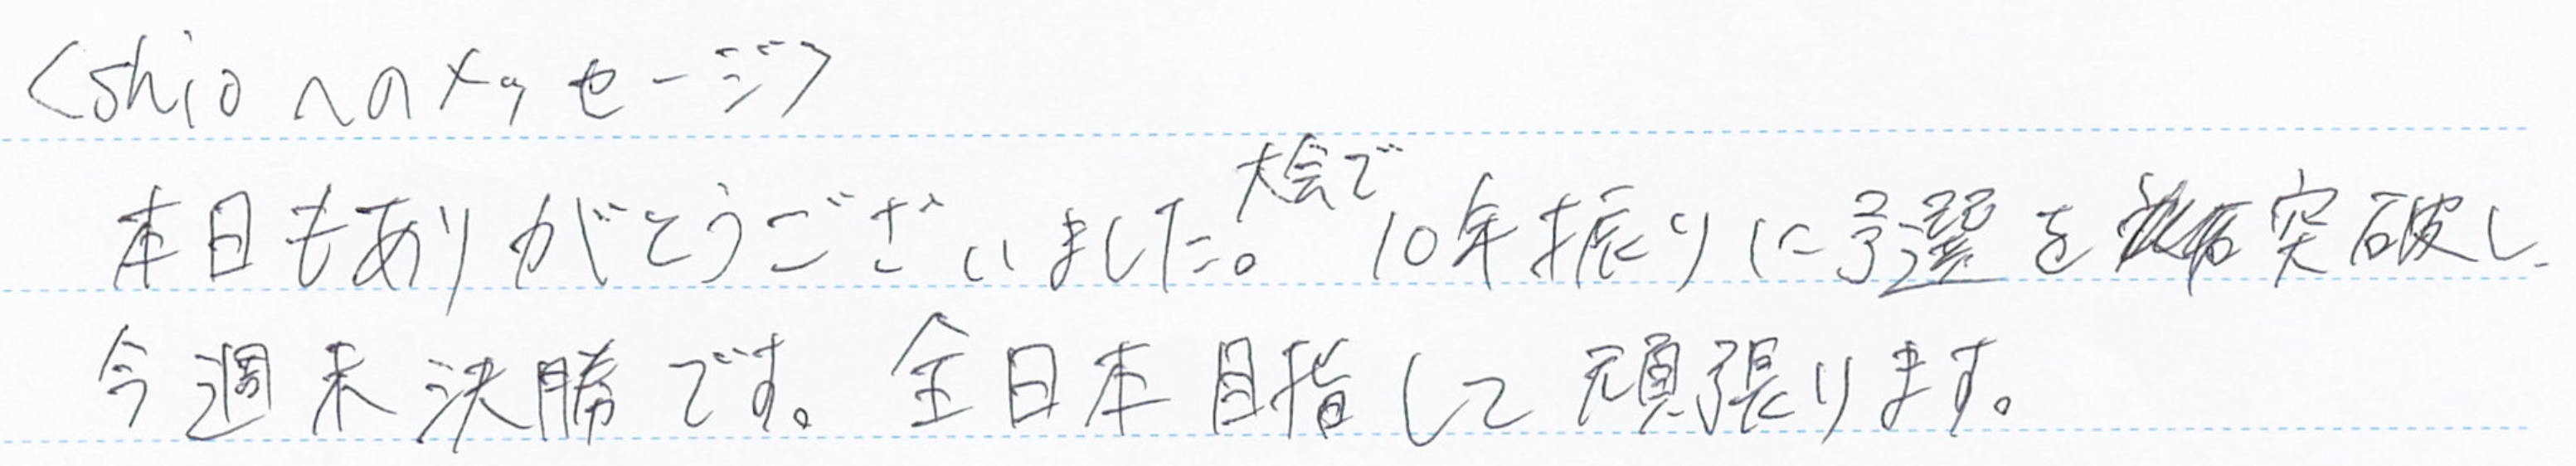 <shioへのメッセージ>
本日もありがとうございました。大会で10年振りに予選を突破し、
今週末決勝です。全日本目指して頑張ります。